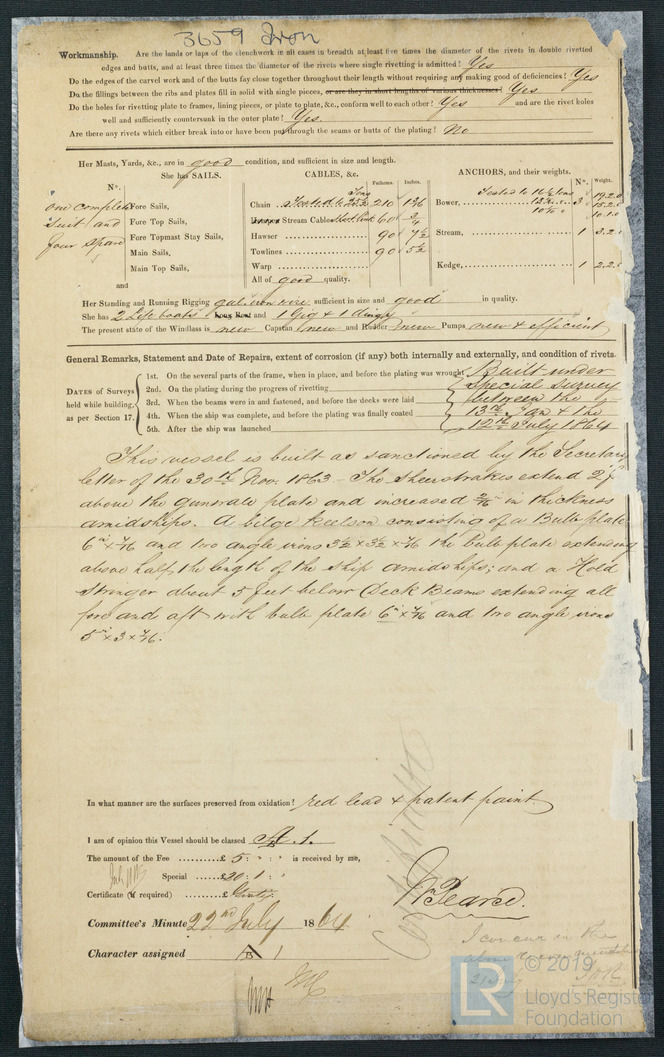 3659 Iron
Workmanship. Are the lands or laps of the clenchwork in all cases in breadth at least five times the diameter of the rivets in double rivetted
edges and butts, and at least three times the diameter of the rivets where single rivetting is admitted? Yes
Do the edges of the carvel work and of the butts fay close together throughout their length without requiring any making good of deficiencies? Yes
Do the fillings between the ribs and plates fill in solid with single pieces, or are they in short lengths of various thicknesses? Yes
Do the holes for rivetting plate to frames, lining pieces, or plate to plate, &c., conform well to each other? Yes and are the rivet holes
well and sufficiently countersunk in the outer plate? Yes.
Are there any rivets which either break into or have been put through the seams or butts of the plating? No
Her Masts, Yards, &c., are in good condition, and sufficient in size and length.
She has SAILS. CABLES, &c. ANCHORS, and their weights.
N°. Fathoms. Inches. N°. Weight.
one complete Fore Sails, Chain Tested to Tons 210 1 3/6 Bower, Tested to tons 3
suit and Fore Top Sails, Stream Cable 60
four spare Fore Topmast Stay Sails, Hawser 90 7½ Stream, 1
Main Sails, Towlines 90 5½
Main Top Sails, Warp Kedge, 1
and All of good quality.
Her Standing and Running Rigging gal. iron wire sufficient in size and good in quality.
She has 2 Life boats Long Boat and 1 Gig & 1 dingy
The present state of the Windlass is new Capstan new and Rudder new Pumps new & efficient
General Remarks, Statement and Date of Repairs, extent of corrosion (if any) both internally and externally, and condition of rivets.
DATES of Surveys held while building, as per Section 17.
1st. On the several parts of the frame, when in place, and before the plating was wrought Built under
2nd. On the plating during the progress of rivetting special survey
3rd. When the beams were in and fastened, and before the decks were laid between the
4th. When the ship was complete, and before the plating was finally coated 13th Jan & the
5th. After the ship was launched 12th July 1864
This vessel is built as sanctioned by the Secretary
letter of the 30th Nov. 1863. The sheerstrakes extend
above the gunwale plate and increased 2/16 in thickness
amidships. A bilge keelson consisting of a Bulb plate
6" x 7/16 and two angle irons 3½ x 3½ x 7/16 the bulb plate extending
above half the length of the ship amidships; and a Hold
Stringer about 5 feet below Deck Beams extending all
fore and aft with bulb plate 6" x 7/16 and two angle irons
5" x 3 x 7/16.
In what manner are the surfaces preserved from oxidation? red lead & patent paint
I am of opinion this Vessel should be classed A.1.
The amount of the Fee £ 5: " : " is received by me,
Special £30: 1: "
Certificate (if required) £
W Pearce.
Committee's Minute 22nd July 1864
Character assigned A 1
I concur in the
above
© 2019
LR
Lloyd's Register
Foundation